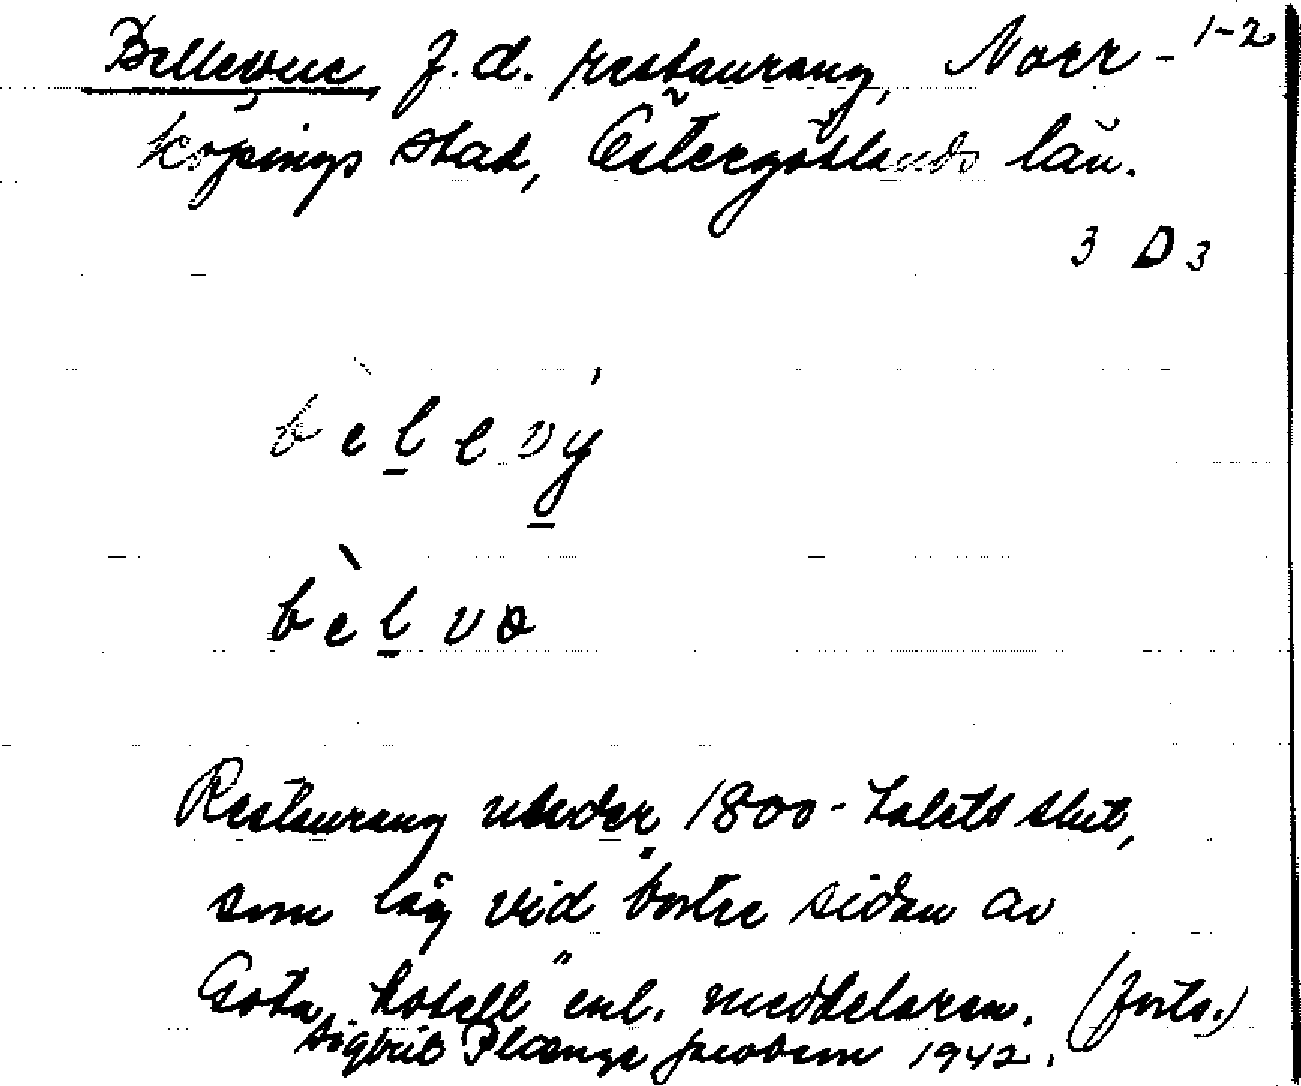 Bellevue, f.d. restaurang, Norr- 1-2
köpings stad, Östergötlands län.
3 D 3
bèlevý
bèlvə
Restaurang under 1800-talets slut,
som låg vid "bortre sidan av
Göta hotell" enl. meddelaren. (forts.)
Sigbrit Plænge Jacobson 1942.